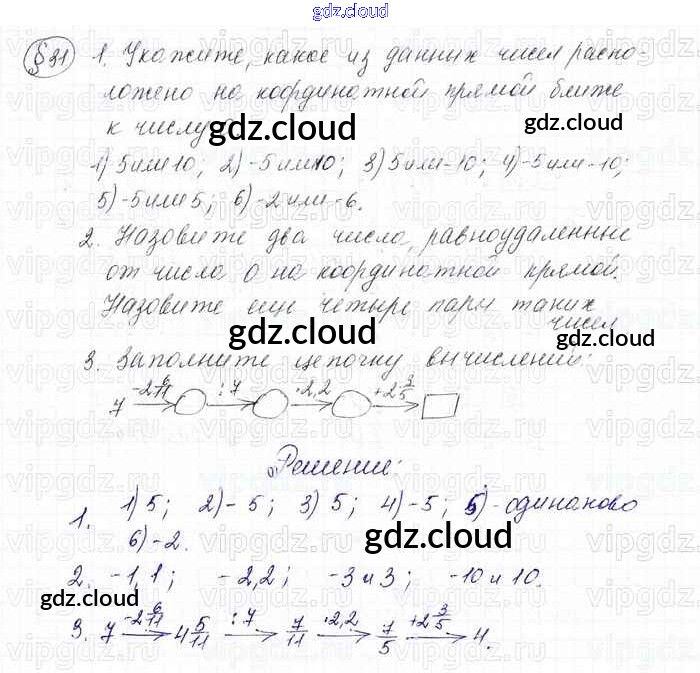 gdz.cloud
gdz.cloud
§31 1. Укажите, какое из данных чисел распо-
ложено на координатной прямой ближе
к числу
gdz.cloud gdz.cloud
1) 5 или 10; 2) -5 или 10; 3) 5 или -10; 4) -5 или -10;
5) -5 или 5; 6) -2 или -6.
2. Назовите два числа, равноудаленные
от числа 0 на координатной прямой.
Назовите еще четыре пары таких
чисел
gdz.cloud gdz.cloud
3. Заполните цепочку вычислений:
7 -2 6/11 → ○ :7 → ○ ·2,2 → ○ +2 3/5 → □
Решение:
1. 1) 5; 2) -5; 3) 5; 4) -5; 5) - одинаково
6) -2.
gdz.cloud
2. -1,1; -2,2; -3 и 3; -10 и 10.
gdz.cloud gdz.cloud
3. 7 -2 6/11 → 4 5/11 :7 → 7/11 ·2,2 → 7/5 +2 3/5 → 4.